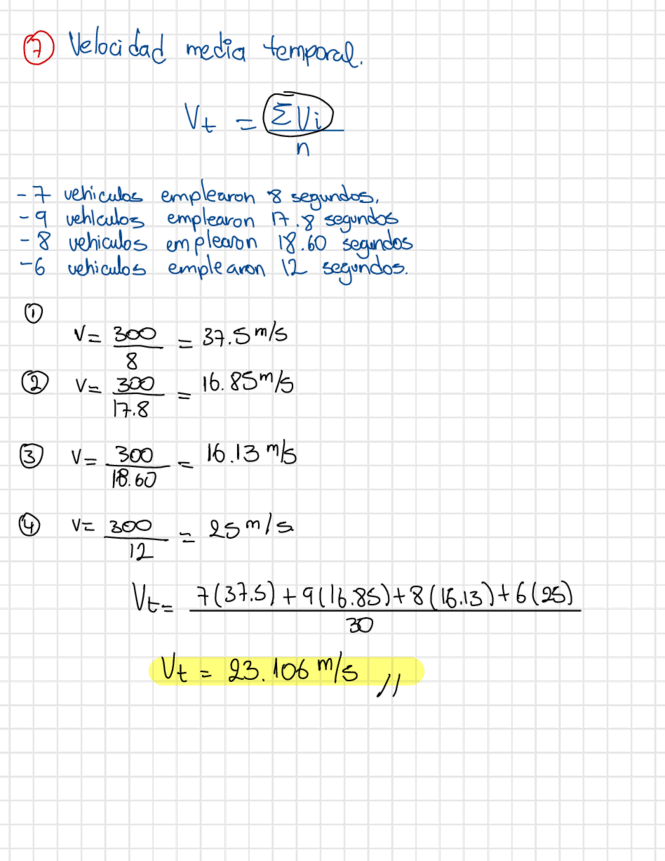 7 Velocidad media temporal.
Vt = ΣVi / n
- 7 vehiculos emplearon 8 segundos.
- 9 vehiculos emplearon 17.8 segundos
- 8 vehiculos emplearon 18.60 segundos
- 6 vehiculos emplearon 12 segundos.
1
V = 300 / 8 = 37.5 m/s
2 V = 300 / 17.8 = 16.85 m/s
3 V = 300 / 18.60 = 16.13 m/s
4 V = 300 / 12 = 25 m/s
Vt = 7(37.5) + 9(16.85) + 8(16.13) + 6(25) / 30
Vt = 23.106 m/s //